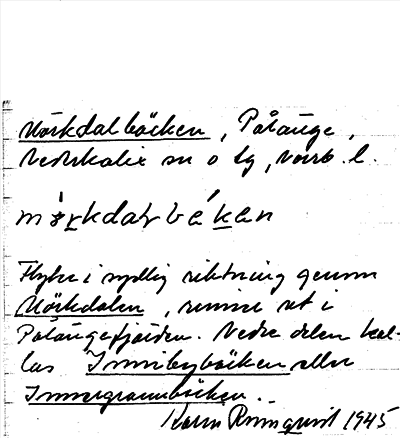 Mörkdalbäcken, Pålänge,
Nederkalix sn o tg, Norrb. l.
mörkdalbäkän
Flyter i sydlig riktning genom
Mörkdalen, rinner ut i
Pålängefjärden. Nedre delen kal-
las Innibybäcken eller
Innigrannbäcken.
Karin Rönnquist 1945